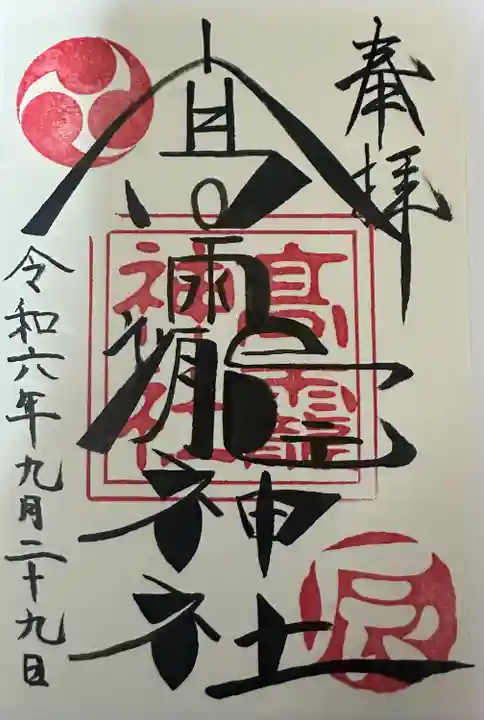 奉拝
高龗神社
髙龗神社
辰
令和六年九月二十九日